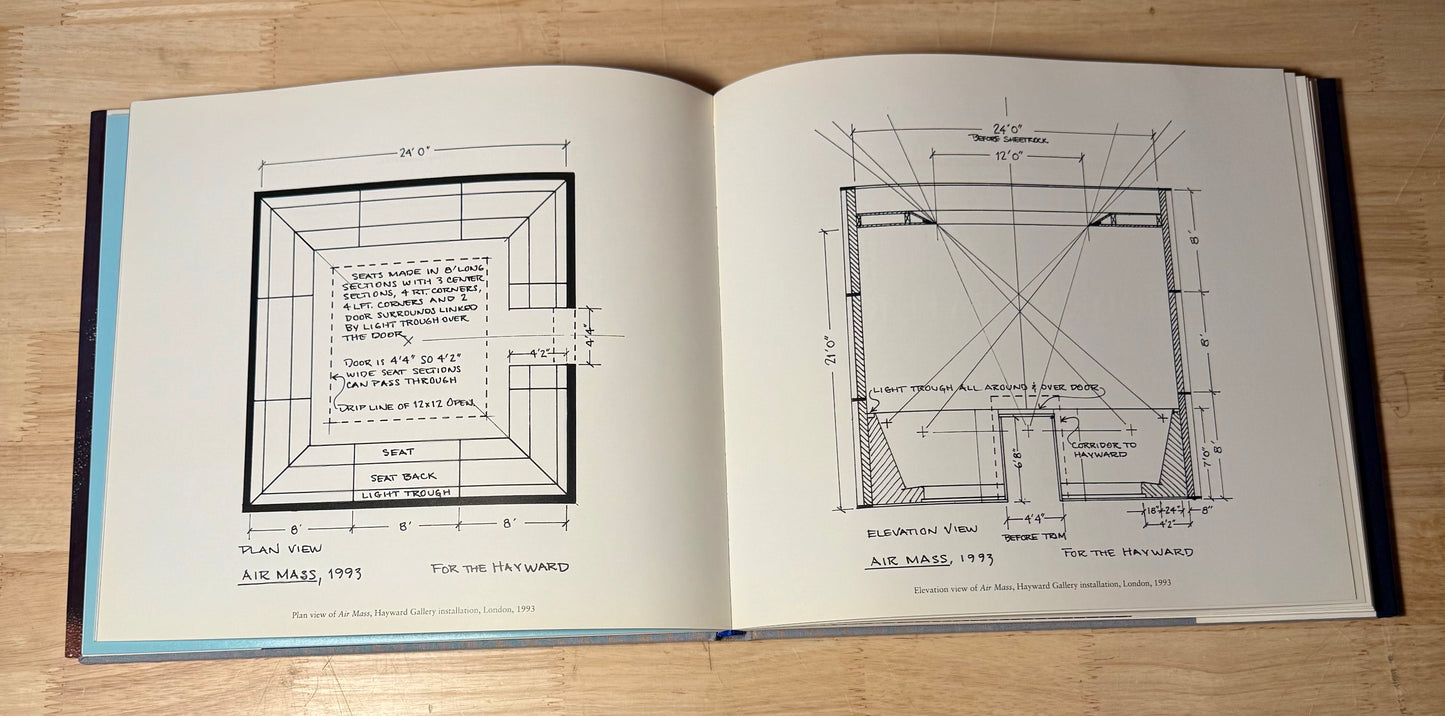 24'0"
SEATS MADE IN 8' LONG
SECTIONS WITH 3 CENTER
SECTIONS, 4 RT. CORNERS,
4 LFT. CORNERS AND 2
DOOR SURROUNDS LINKED
BY LIGHT TROUGH OVER
THE DOOR
DOOR IS 4'4" SO 4'2"
WIDE SEAT SECTIONS
CAN PASS THROUGH
DRIP LINE OF 12x12 OPEN.
4'2"
4'4"
SEAT
SEAT BACK
LIGHT TROUGH
8' 8' 8'
PLAN VIEW
AIR MASS, 1993 FOR THE HAYWARD
Plan view of Air Mass, Hayward Gallery installation, London, 1993
24'0"
BEFORE SHEETROCK
12'0"
8'
21'0"
8'
LIGHT TROUGH ALL AROUND & OVER DOOR
CORRIDOR TO
HAYWARD
6'8"
7'0"
8'
4'4"
BEFORE TRIM
18" 24" 8"
4'2"
ELEVATION VIEW
AIR MASS, 1993 FOR THE HAYWARD
Elevation view of Air Mass, Hayward Gallery installation, London, 1993